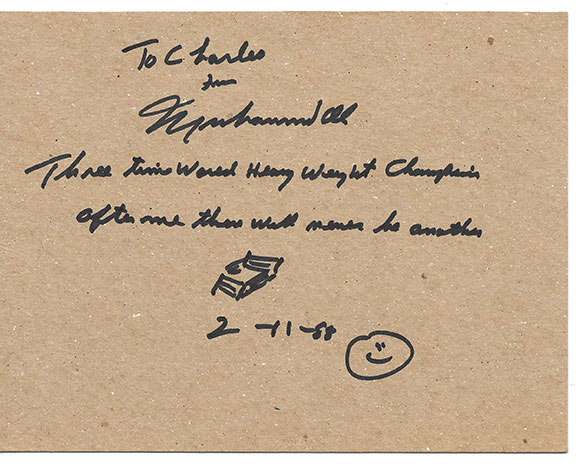 To Charles
from
Muhammad Ali
Three time World Heavy Weight Champion
After me there will never be another
2-11-88